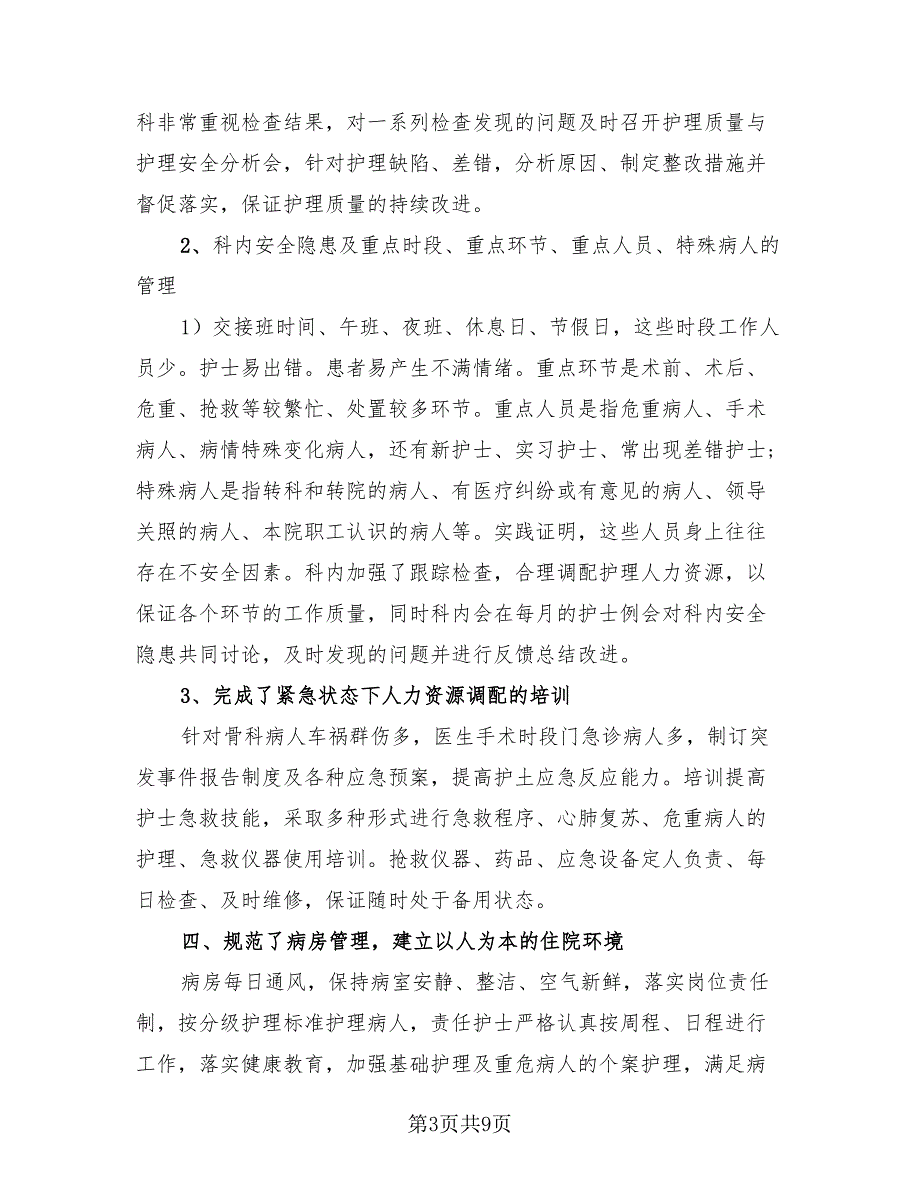 科非常重视检查结果，对一系列检查发现的问题及时召开护理质量与
护理安全分析会，针对护理缺陷、差错，分析原因、制定整改措施并
督促落实，保证护理质量的持续改进。
2、科内安全隐患及重点时段、重点环节、重点人员、特殊病人的
管理
1）交接班时间、午班、夜班、休息日、节假日，这些时段工作人
员少。护士易出错。患者易产生不满情绪。重点环节是术前、术后、
危重、抢救等较繁忙、处置较多环节。重点人员是指危重病人、手术
病人、病情特殊变化病人，还有新护士、实习护士、常出现差错护士;
特殊病人是指转科和转院的病人、有医疗纠纷或有意见的病人、领导
关照的病人、本院职工认识的病人等。实践证明，这些人员身上往往
存在不安全因素。科内加强了跟踪检查，合理调配护理人力资源，以
保证各个环节的工作质量，同时科内会在每月的护士例会对科内安全
隐患共同讨论，及时发现的问题并进行反馈总结改进。
3、完成了紧急状态下人力资源调配的培训
针对骨科病人车祸群伤多，医生手术时段门急诊病人多，制订突
发事件报告制度及各种应急预案，提高护土应急反应能力。培训提高
护士急救技能，采取多种形式进行急救程序、心肺复苏、危重病人的
护理、急救仪器使用培训。抢救仪器、药品、应急设备定人负责、每
日检查、及时维修，保证随时处于备用状态。
四、规范了病房管理，建立以人为本的住院环境
病房每日通风，保持病室安静、整洁、空气新鲜，落实岗位责任
制，按分级护理标准护理病人，责任护士严格认真按周程、日程进行
工作，落实健康教育，加强基础护理及重危病人的个案护理，满足病
第3页共9页